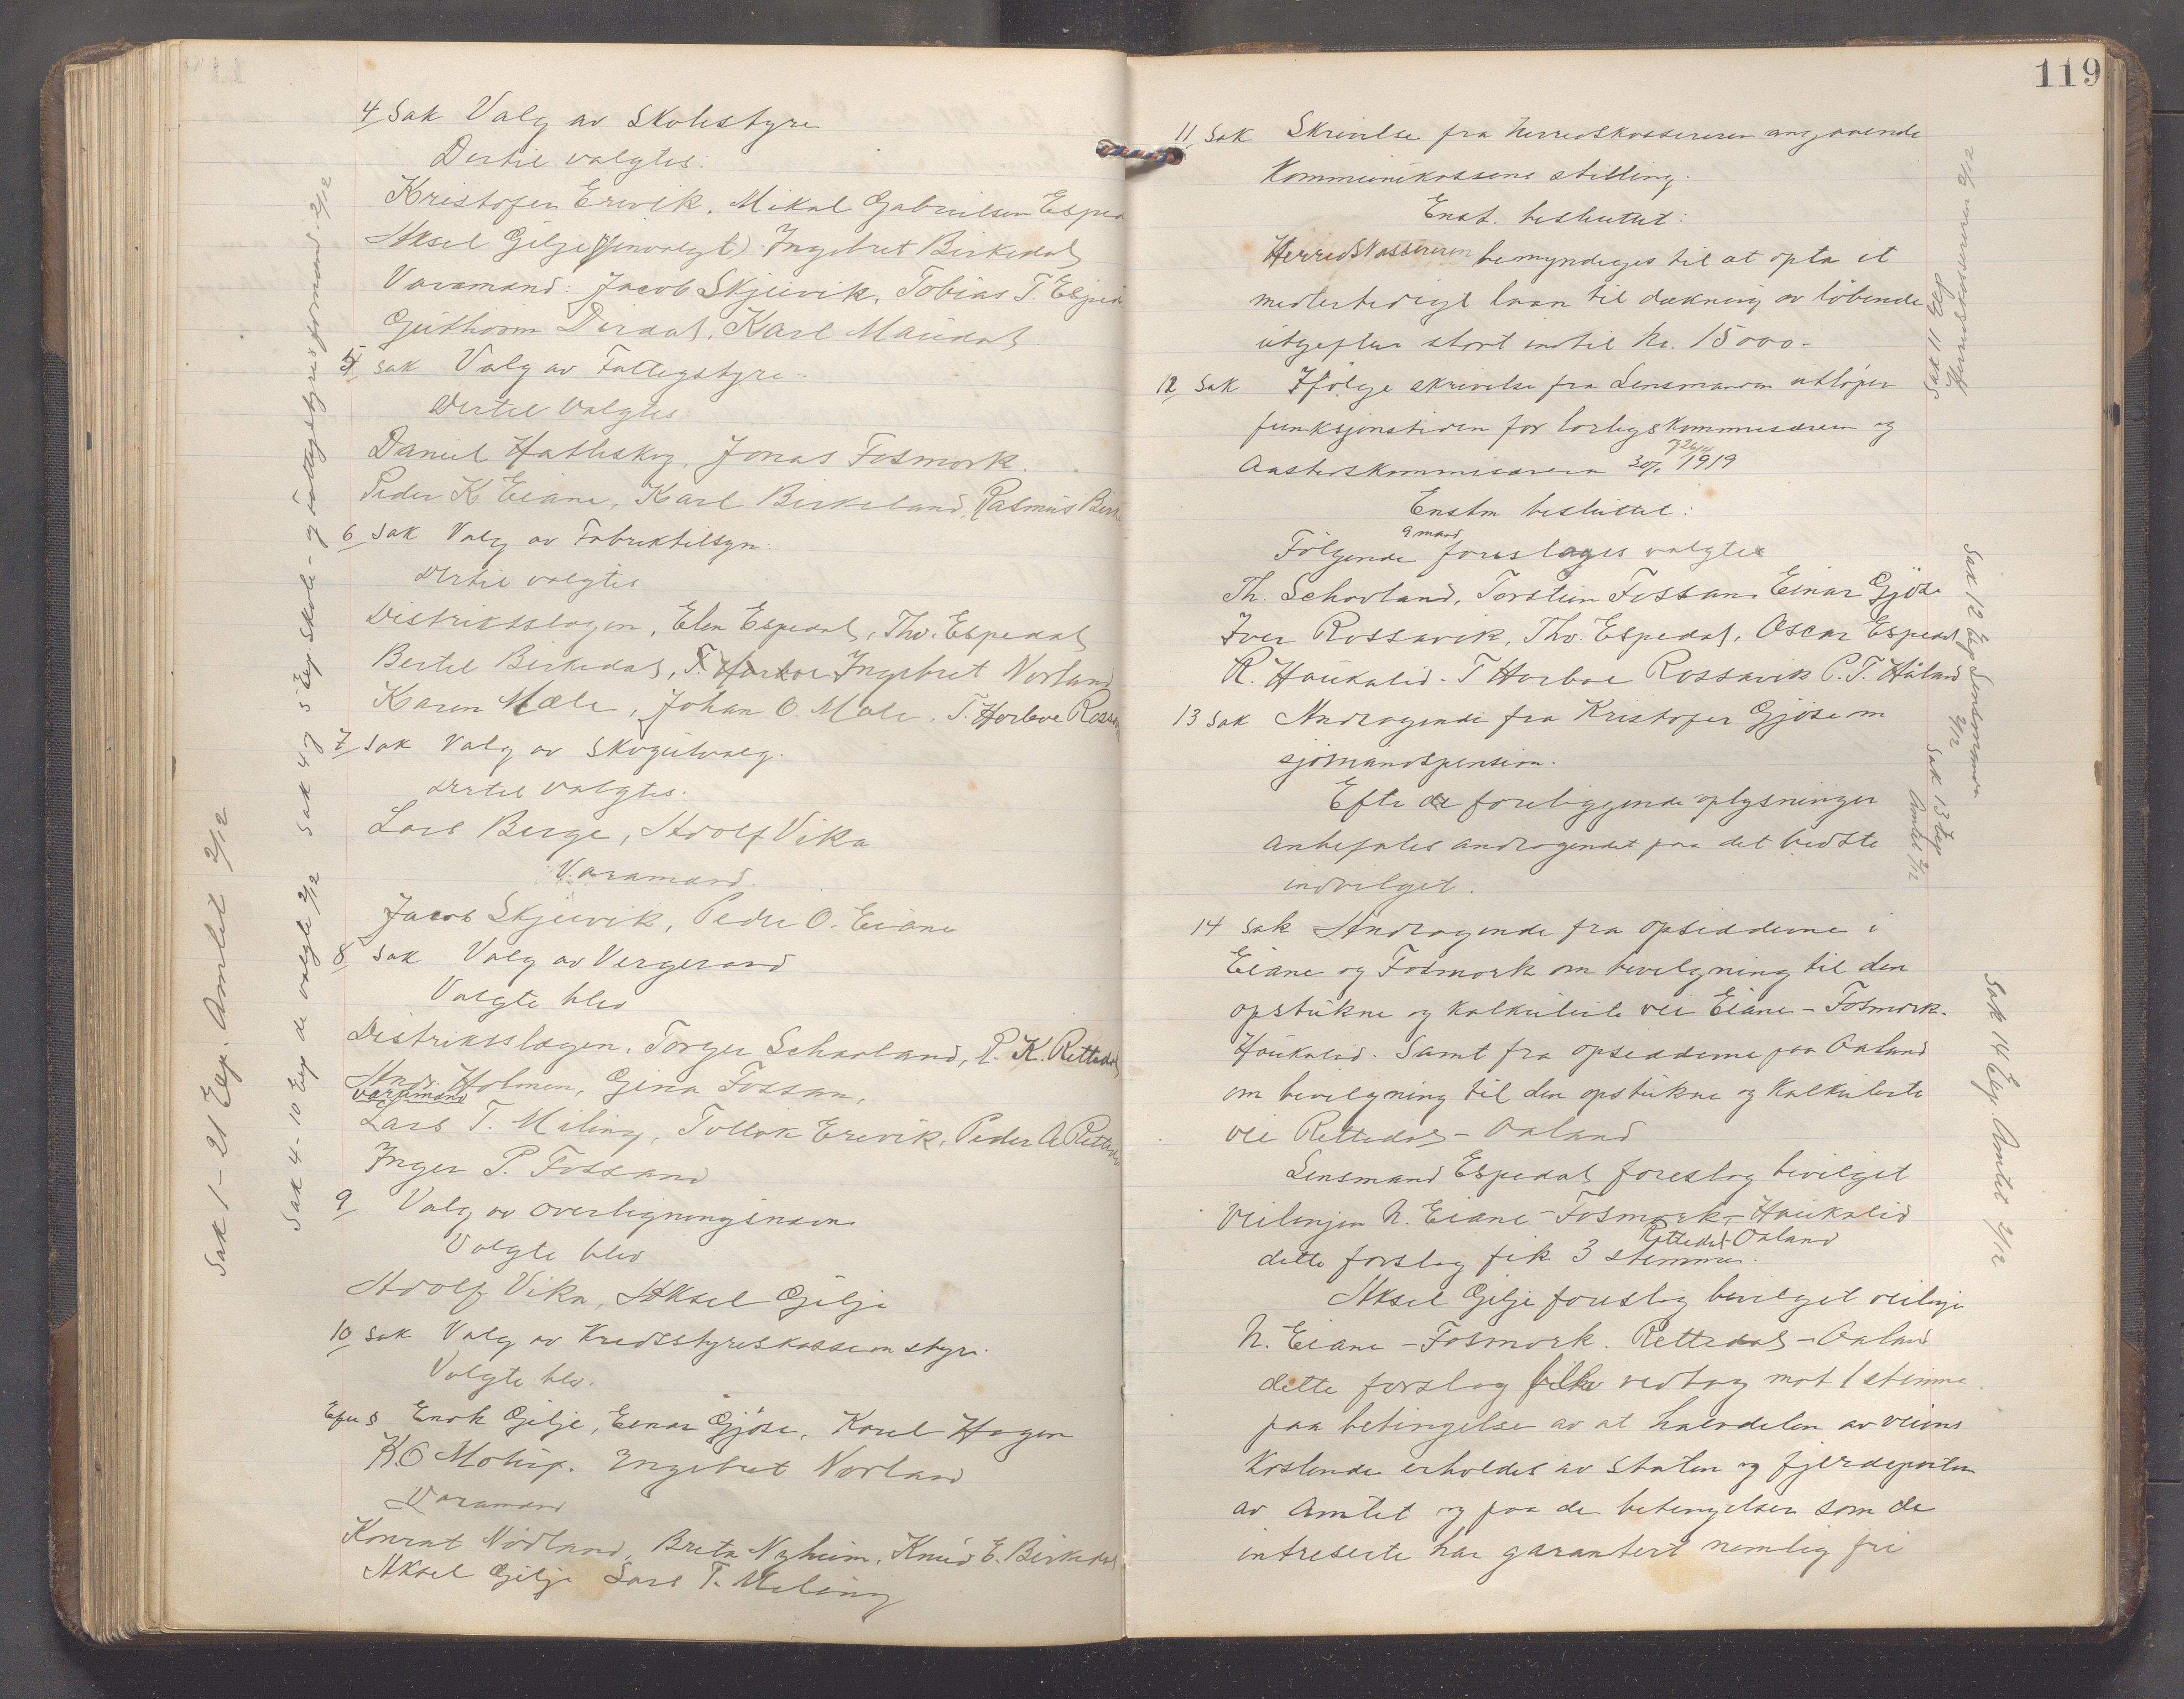 4 Sak Valg av Skolestyre
Dertil valgtes:
Kristofer Erevik, Mikal Gabrielsen Esped
Aksel Gilje (Gjenvalgt) Ingebret Birkedal
Varamænd: Jacob Skjeivik, Tobias T. Esped
Guthorm Dirdal, Karl Maudal
5 sak Valg av Fattigstyre.
Dertil valgtes:
Daniel Hatleskog, Jonas Fosmork.
Peder K Eiane, Karl Birkeland, Rasmus Birke
6 Sak Valg av Fabriktilsyn:
Dertil valgtes
Distriktslægen, Elen Espedal, Thv. Espedal
Bertil Birkedal, Ingebret Norland
Karen Mæle, Johan O. Mæle, T. Horboe Rossa
7 Sak Valg av Skogutvalg.
Dertil valgtes.
Lars Berge, Adolf Vika
Varamænd
Jacob Skjeivik, Peder O. Eiane
8 Sak Valg av Vergeraad
Valgte blev
Distriktslægen, Torger Schaaland, P. K. Rettedal
Andr. Holmen, Gina Fossan,
varamænd
Lars T. Meling, Tollak Erevik, Peder A Rettedal
Inger P. Fossand
9 Valg av overligningsnævn
Valgte blev
Adolf Vika, Aksel Gilje
10 Sak Valg av Kredsstyreskassen styre.
Valgte blev.
Enok Gilje, Einar Gjöse, Karel Hagen
K.O Ingebret Norland
Varamænd
Konrat Nödland, Brita Nyheim, Knud E. Birkedal
Aksel Gilje Lars T. Meling
Sak 1 - 21 Exp. Amtet 2/12
Sak 4 - 10 Exp de valgte 2/12 Sak 4 og 5 Exp Skole- og fattigstyresformænd 2/12
119
11 Sak Skrivelse fra herredskassereren angaaende
Kommunekassens stilling.
Enst. besluttet:
Herredskassereren bemyndiges til at opta et
medlertidigt laan til dækning av löbende
utgifter stort indtil kr. 15000-
12 Sak Ifölge skrivelse fra Lensmanden utlöper
funksjonstiden for Kommissæren og
Aastedskommisæren 30/ 1919
Enstm besluttet:
9 mænd
Fölgende foreslages valgte
Th. Schovland, Torstein Fossan, Einar Gjöse
Iver Rossavik, Thv. Espedal, Oscar Espedal
R. Haukalid. T Horboe Rossavik P.T. Håland
13 Sak Andragende fra Kristofer Gjöse om
sjömandspension.
Efter de foreliggende oplysninger
anbefales andragendet paa det bedste
indvilget.
14 Sak Andragende fra opsidderne i
Eiane og Fosmork om bevilgning til den
opstukne og kalkulerte vei Eiane - Fosmork.
Haukalid. Samt fra opsidderne paa Oaland
om bevilgning til den opstukne og kalkulerte
vei Rettedal - Oaland
Lensmand Espedal foreslog bevilget
Veilinjen N. Eiane - Fosmork - Haukalid
Rettedal Oaland
dette forslag fik 3 stemmer.
Aksel Gilje foreslog bevilget veilinje
N. Eiane - Fosmork. Rettedal - Oaland
dette forslag blev vedtag mot 1 stemme.
paa betingelse av at halvdelen av veiens
kostende erholdes av Staten og fjerdeparten
av Amtet og paa de betingelser som de
intreserte har garantert nemlig fri
Sak 11 Exp
Herredskassereren 2/12
Sak 12 Exp Lensmanden
2/12
Sak 13 Exp
Amtet 2/12
Sak 14 Exp. Amtet 2/12